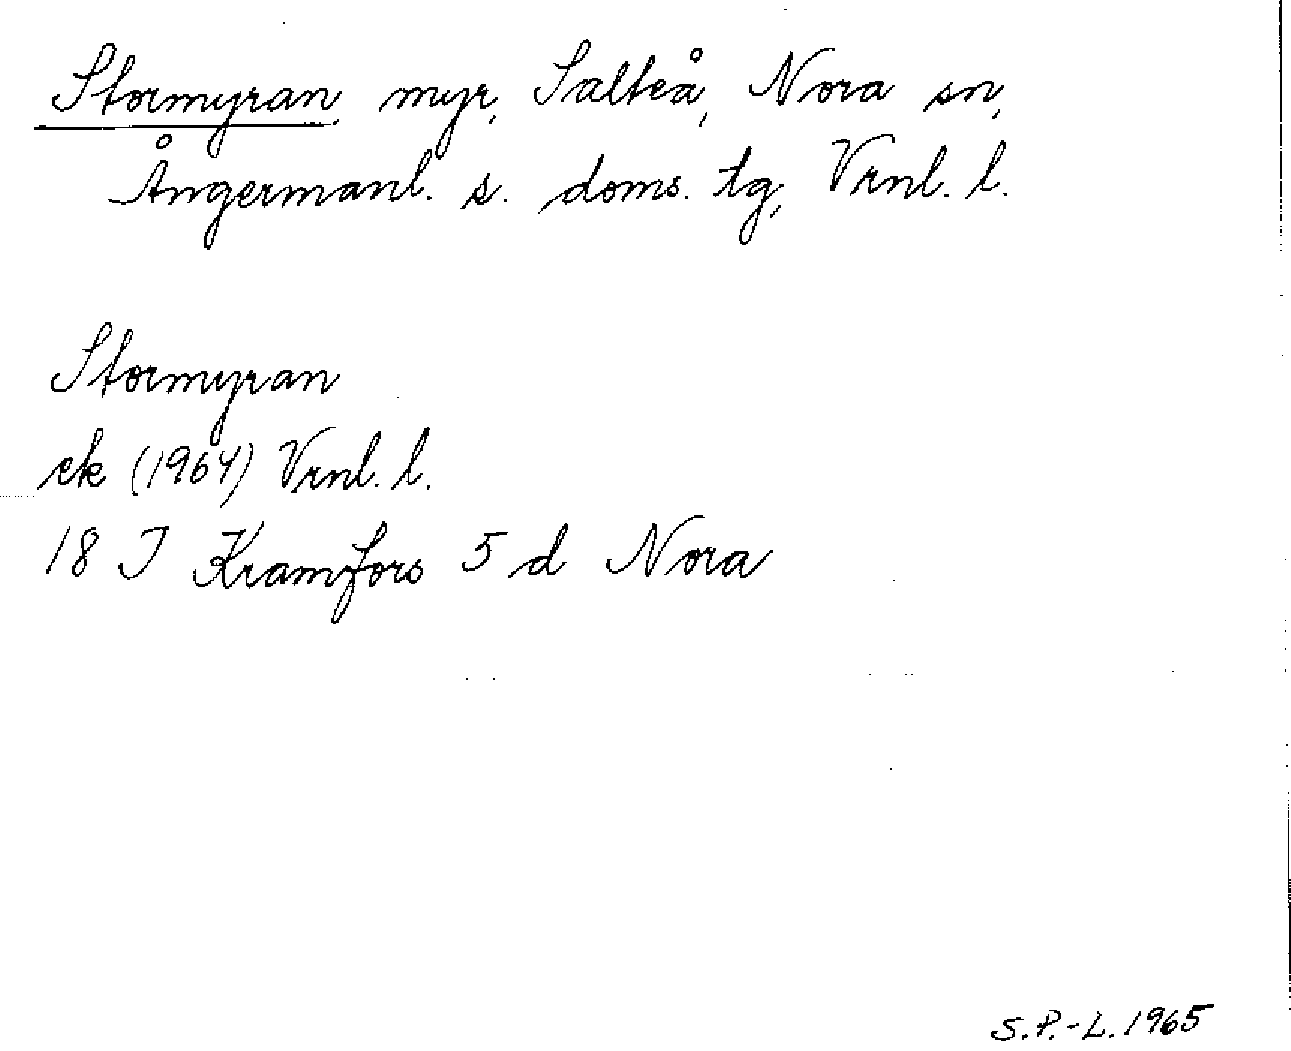 Stormyran, myr, Salteå, Nora sn,
Ångermanl. s. doms. tg, Vrnl. l.
Stormyran
ek (1964) Vrnl. l.
18 I Kramfors 5 d Nora
S.P.-L. 1965